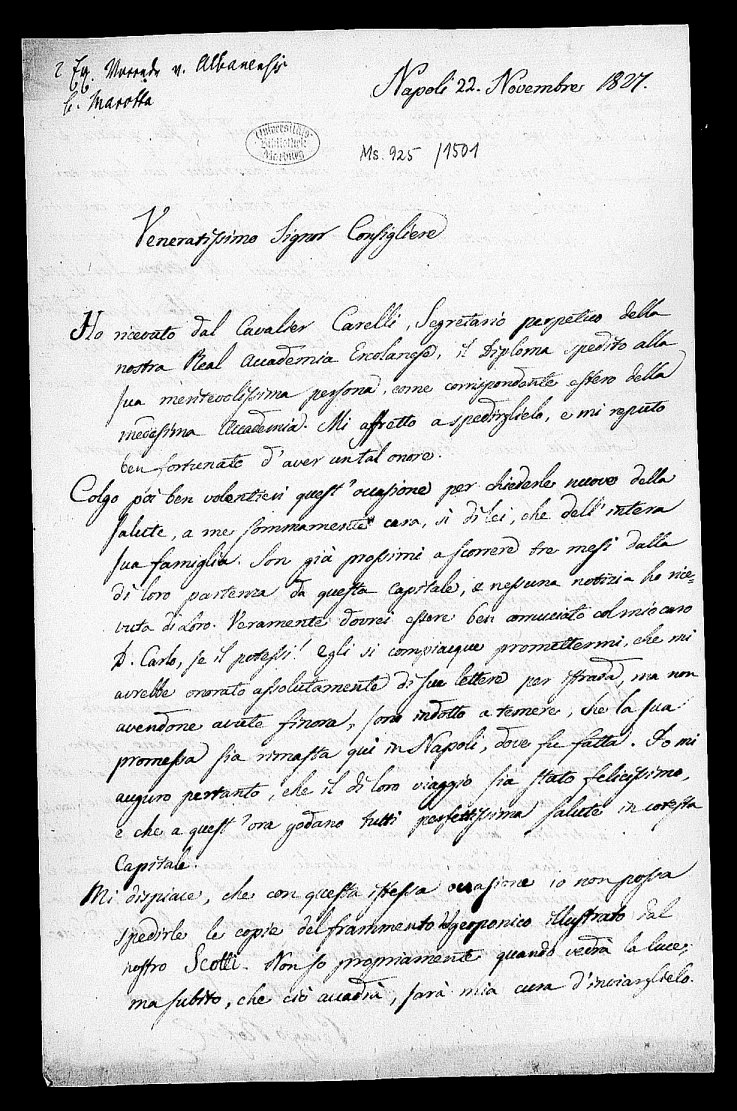 Napoli 22. Novembre 1827.
B. Marotta
Universitäts-
Bibliothek
Marburg
Ms. 925 /1501
Veneratissimo Signor Consigliere
Ho ricevuto dal Cavalier Carelli, Segretario perpetuo della
nostra Real Accademia Ercolanese, il Diploma spedito alla
sua meritevolissima persona, come corrispondente estero della
medesima Accademia. Mi affretto a spedirglielo, e mi reputo
ben fortunato d'aver un tal onore.
Colgo poi ben volentieri quest'occasione per chiederle nuove della
salute, a me sommamente cara, sì di lei, che dell'intera
sua famiglia. Son già prossimi a scorrere tre mesi dalla
di loro partenza da questa capitale, e nessuna notizia ho rice-
vuta di loro. Veramente dovrei essere ben corrucciato col mio caro
D. Carlo, se il potessi! Egli si compiacque promettermi, che mi
avrebbe onorato assolutamente di sue lettere per istrada, ma non
avendone avute finora, sono indotto a temere, che la sua
promessa sia rimasta qui in Napoli, dove fu fatta. Io mi
auguro pertanto, che il di loro viaggio sia stato felicissimo,
e che a quest'ora godano tutti perfettissima salute in cotesta
Capitale.
Mi dispiace, che con questa istessa occasione io non possa
spedirle le copie del frammento Igeoponico illustrato dal
nostro Scotti. Non so propriamente quando vedrà la luce;
ma subito, che ciò accadrà, sarà mia cura d'inviarglielo.